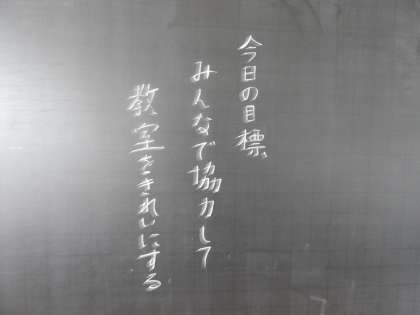 今日の目標、
みんなで協力して
教室をきれいにする